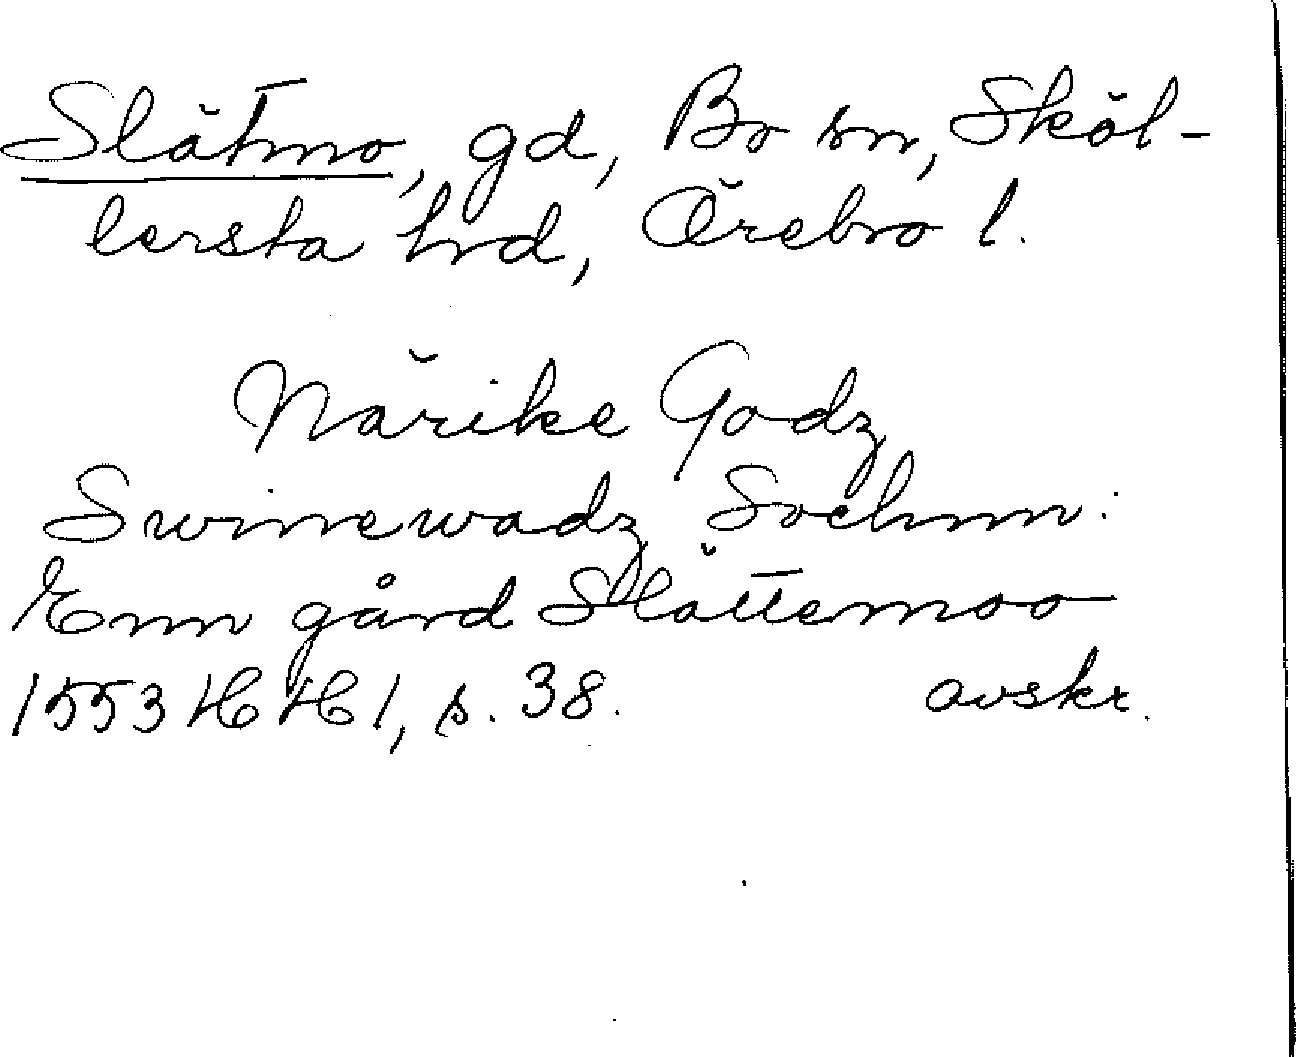 Slätmo, gd, Bo sn, Sköl-
lersta hrd, Örebro l.
Närike Godz
Swinewadz Sochnn:
Enn gård Slättemoo
1553 HH 1, s. 38. avskr.